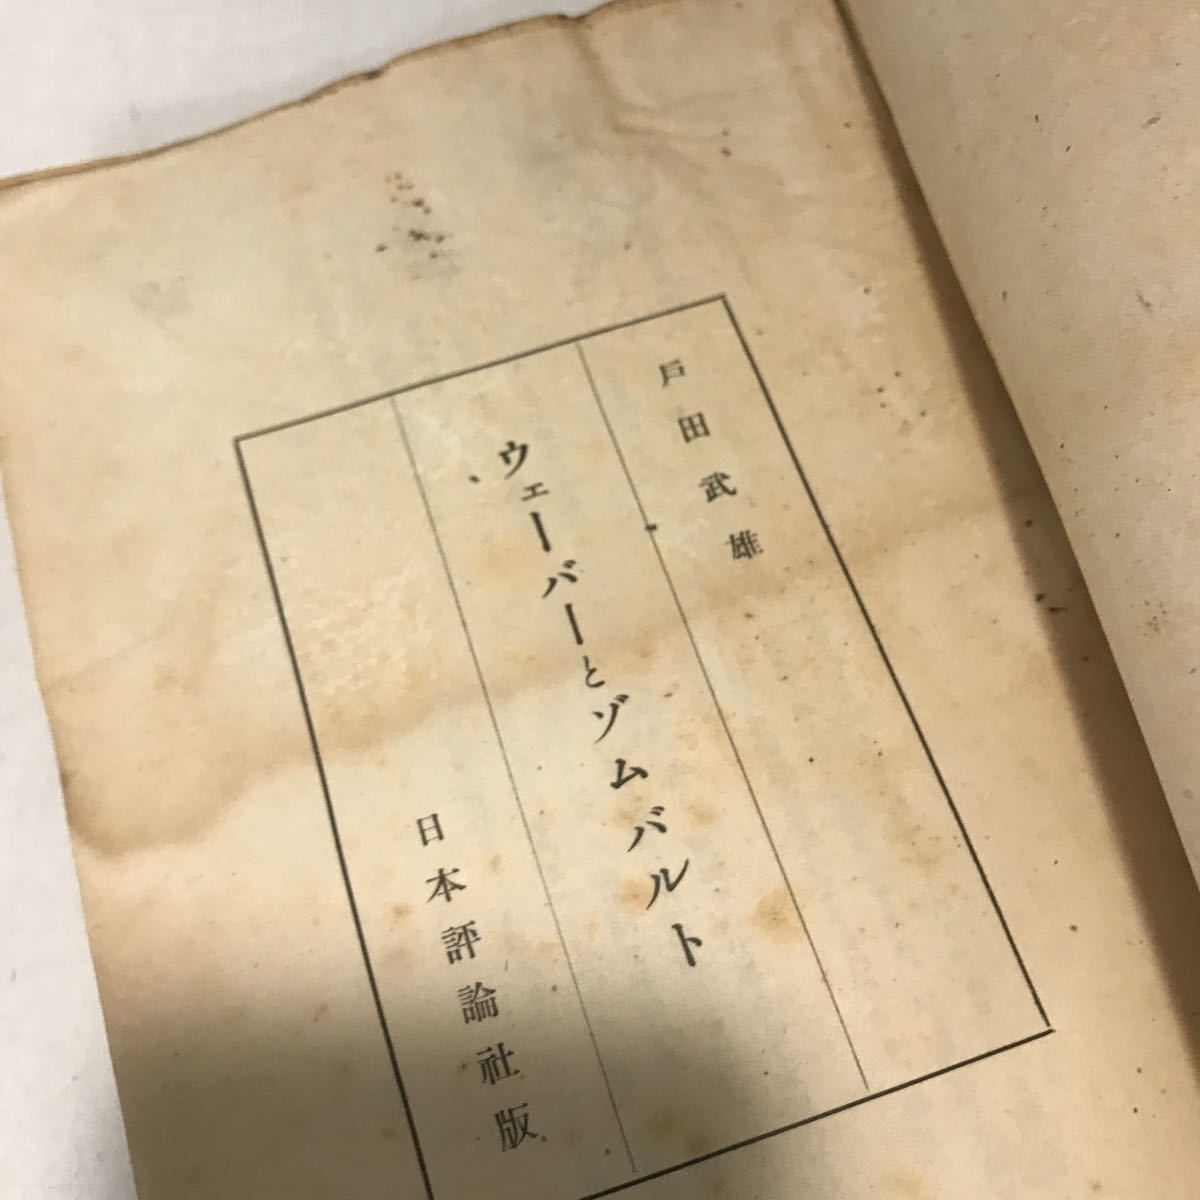 戸田武雄
ウェーバーとゾムバルト
日本評論社版